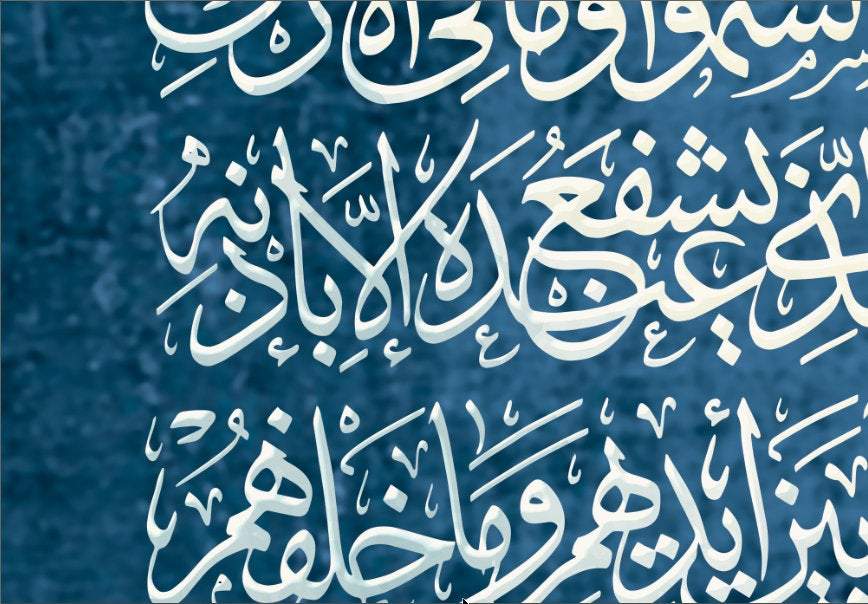 السموات وما في الارض
الذي يشفع عنده إلا بإذنه
بين أيديهم وما خلفهم